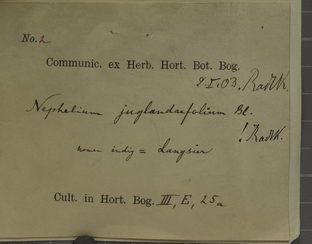 No. 2
Communic. ex Herb. Hort. Bot. Bog.
8.I.03. Radlk.
Nephelium juglandaefolium Bl.
! Radlk.
nomen indig = Langsier
Cult. in Hort. Bog. III, E, 25a